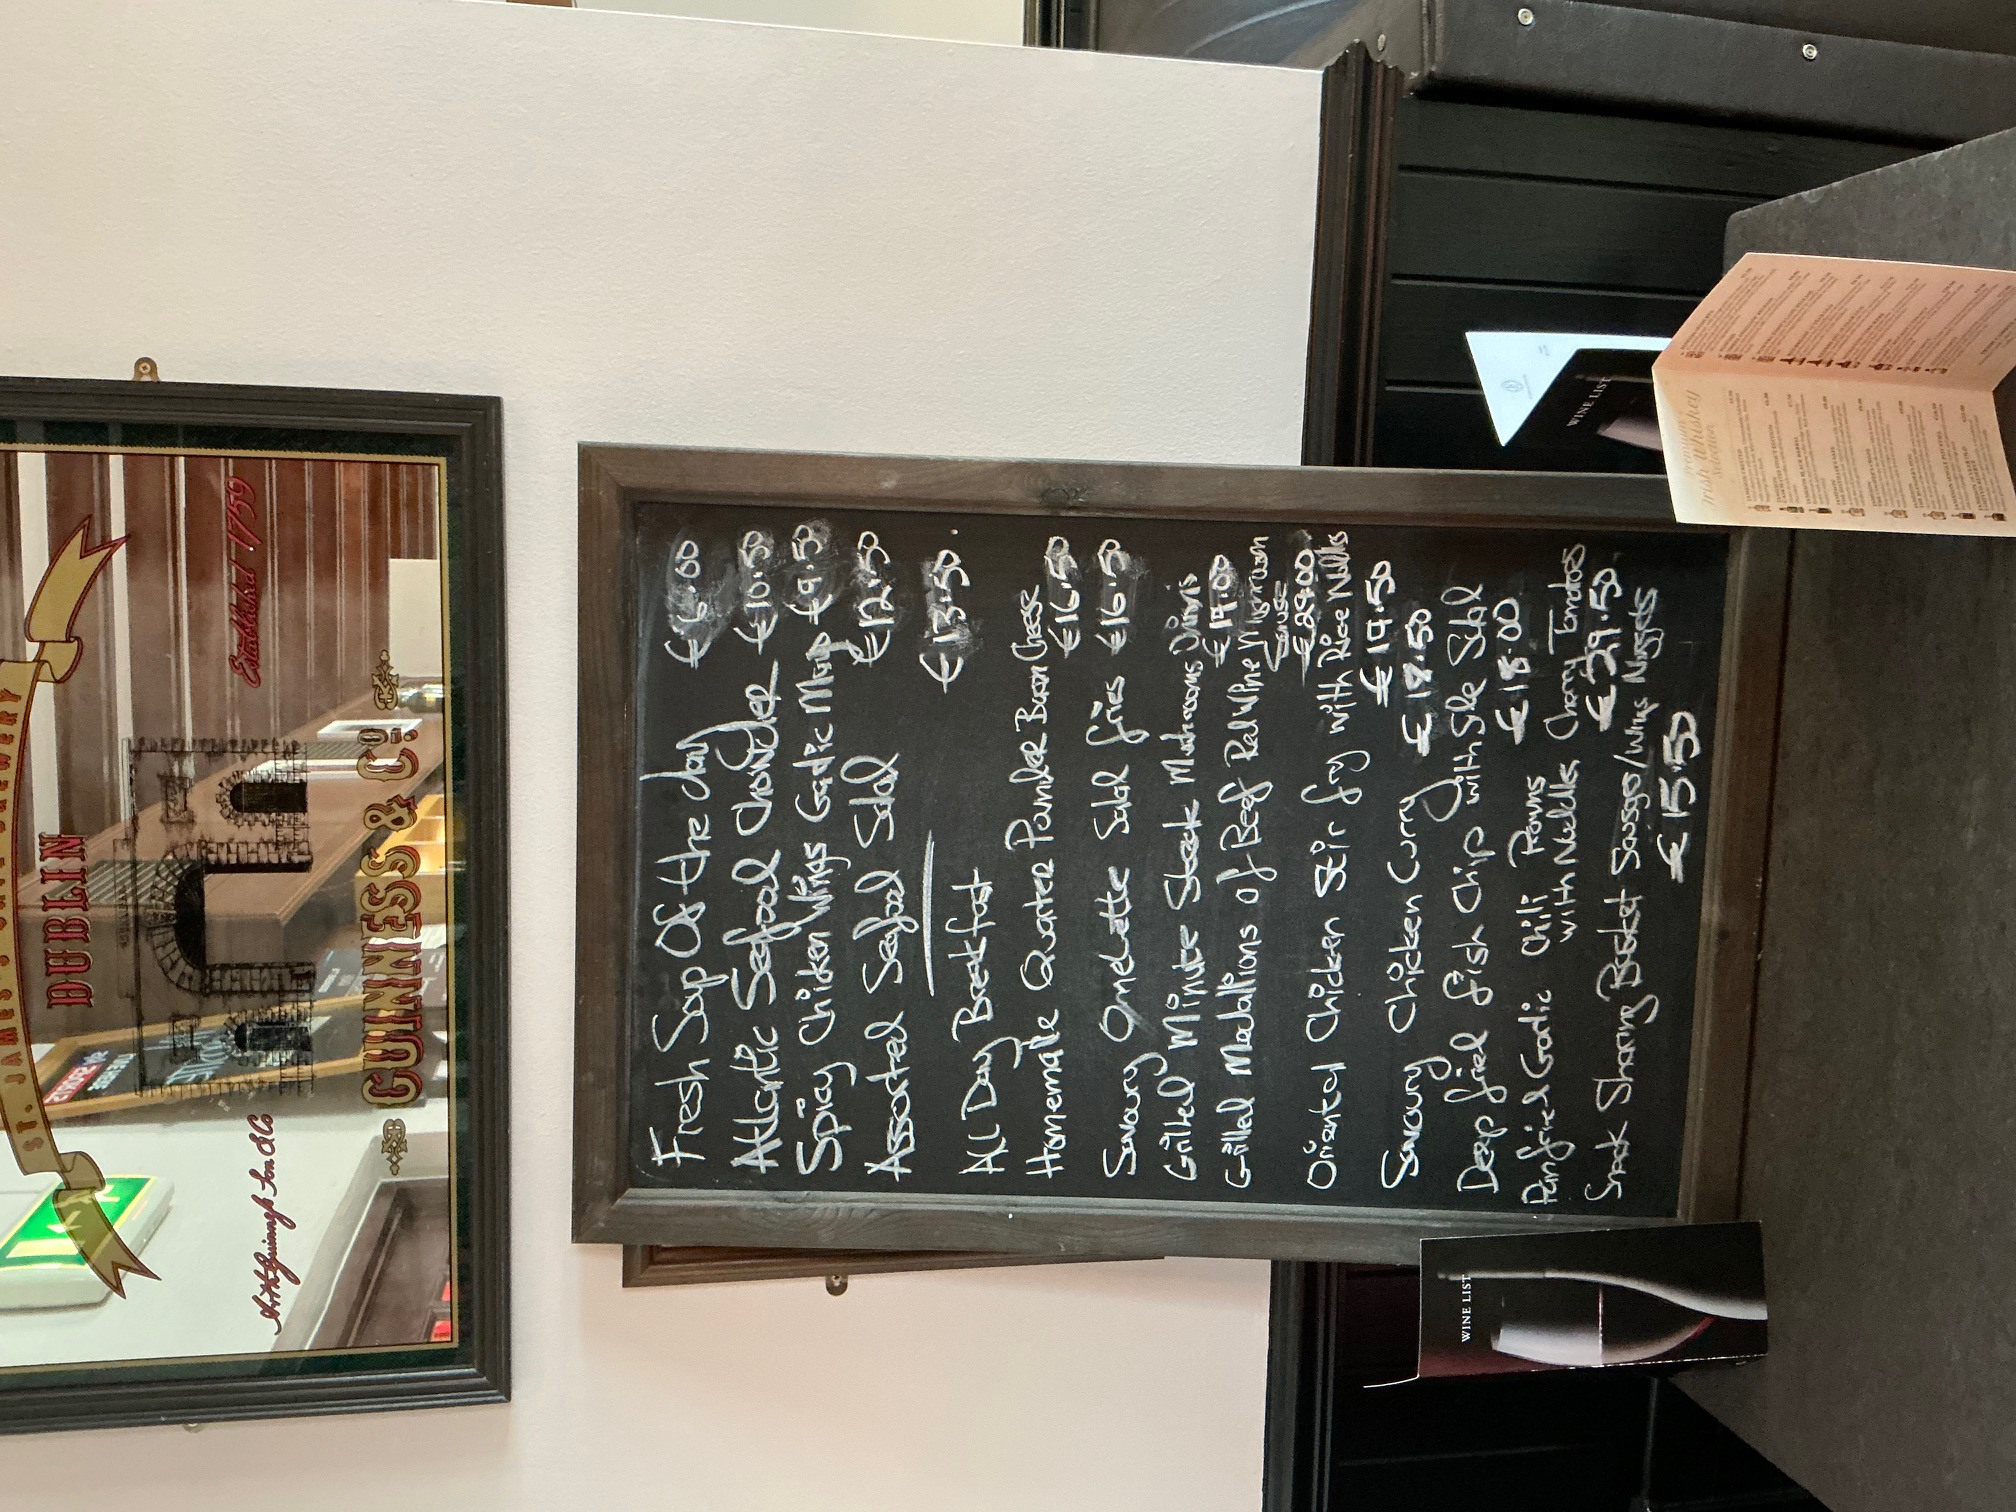 ST. JAMES'S GATE BREWERY
DUBLIN
Established 1759
GUINNESS & Co.
Fresh Soup Of the day €6.00
Atlantic Seafood Chowder €10.50
Spicy Chicken Wings Garlic Mayo €9.50
Assorted Seafood Salad €12.50
All Day Breakfast €13.50.
Homemade Quarter Pounder Bacon Cheese
€16.50
Savoury Omelette Salad fries €16.50
Grilled Minute Steak Mushrooms Onions
€19.00
Grilled Medallions of Beef Red Wine Mushroom
Sauce
€29.00.
Oriental Chicken Stir fry with Rice Noodles
€19.50
Savoury Chicken Curry €18.50
Deep fried fish Chip with Side Salad
€18.00
Panfried Garlic Chili Prawns
with Noodles Cherry Tomatoes
€29.50.
Snack Sharing Basket Sausage/Wings Nuggets
€15.50
WINE LIST
WINE LIST
Premium
Irish Whiskey
Selection